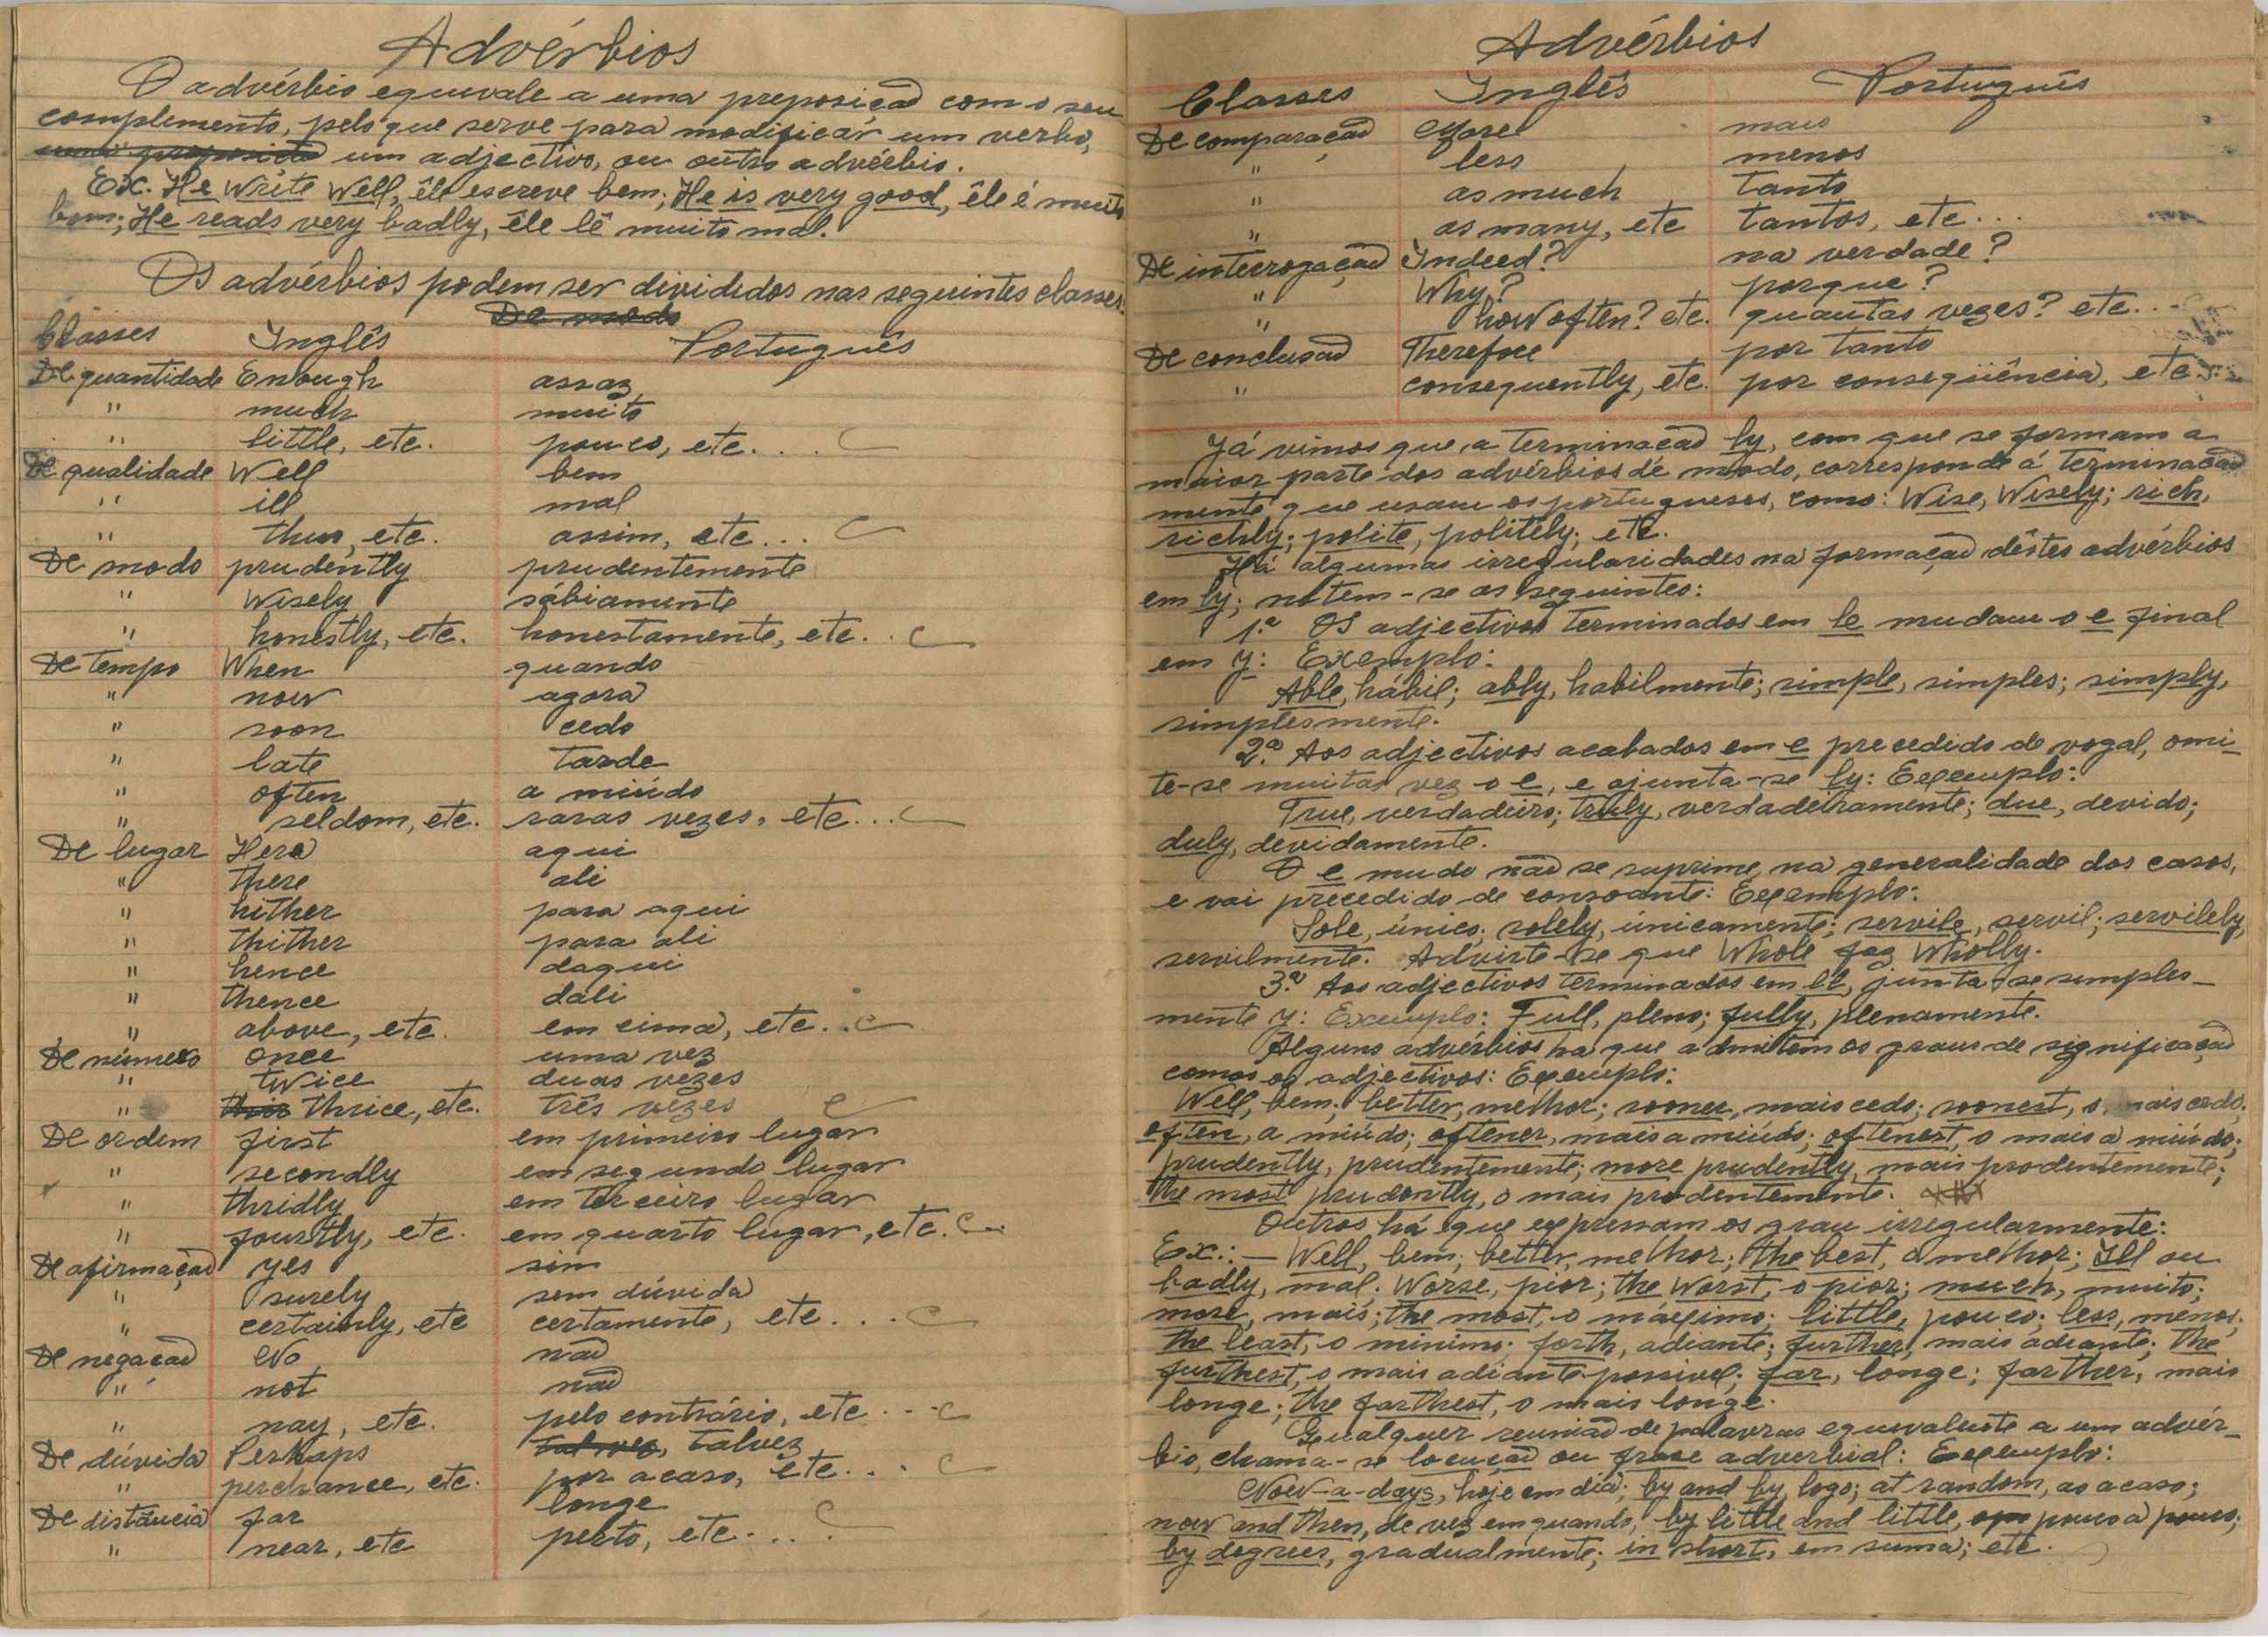 Advérbios
O advérbio equivale a uma preposição com o seu
complemento, pelo que serve para modificar um verbo,
um adjectivo, ou outro advérbio.
Ex. He Write Well, êle escreve bem; He is very good, êle é muito
bom; He reads very badly, êle lê muito mal.
Os advérbios podem ser divididos nas seguintes classes:
De modo
Classes Inglês Português
De quantidade Enough assaz
" much muito
" little, etc. pouco, etc...
De qualidade Well bem
" ill mal
" thus, etc. assim, etc...
De modo prudently prudentemente
" Wisely sàbiamente
" honestly, etc. honestamente, etc..
De tempo When quando
" now agora
" soon cedo
" late tarde
" often a miúdo
" seldom, etc. raras vezes, etc...
De lugar Here aqui
" there ali
" hither para aqui
" thither para ali
" hence daqui
" thence dali
" above, etc. em cima, etc..
De número once uma vez
" twice duas vezes
" thrice, etc. três vezes
De ordem first em primeiro lugar
" secondly em segundo lugar
" thridly em terceiro lugar
" fourtly, etc. em quarto lugar, etc.
De afirmação yes sim
" surely sem dúvida
" certainly, etc certamente, etc...
De negação No não
" not não
" nay, etc. pelo contrário, etc...
De dúvida Perhaps talvez, talvez
" perchance, etc. por acaso, etc...
De distância far longe
" near, etc perto, etc...
Advérbios
Classes Inglês Português
De comparação More mais
" less menos
" as much tanto
" as many, etc tantos, etc...
De interrogação Indeed? na verdade?
" Why? porque?
" how often? etc. quantas vezes? etc...
De conclusão Therefore por tanto
" consequently, etc. por conseqüência, etc...
Já vimos que a terminação ly, com que se formam a
maior parte dos advérbios de modo, corresponde á terminação
mente que usam os portugueses, como: Wise, Wisely; rich,
richly; polite, politely; etc.
Há algumas irregularidades na formação dêstes advérbios
em ly; notem-se as seguintes:
1.ª Os adjectivos terminados em le mudam o e final
em y: Exemplo:
Able, hábil; ably, habilmente; simple, simples; simply,
simplesmente.
2.ª Aos adjectivos acabados em e precedido de vogal, omi-
te-se muitas vez o e, e ajunta-se ly: Exemplo:
True, verdadeiro; truly, verdadeiramente; due, devido;
duly, devidamente.
O e mudo não se suprime, na generalidade dos casos,
e vai precedido de consoante: Exemplo:
Sole, único; solely, únicamente; servile, servil; servilely,
servilmente. Advirte-se que Whole faz Wholly.
3.ª Aos adjectivos terminados em ll, junta-se simples-
mente y: Exemplo: Full, pleno; fully, plenamente.
Alguns advérbios há que admitem os graus de significação
comos os adjectivos: Exemplo:
Well, bem; better, melhor; sooner, mais cedo; soonest, o mais cedo;
often, a miúdo; oftener, mais a miúdo; oftenest, o mais a miúdo;
prudently, prudentemente; more prudently, mais prodentemente;
the most prudently, o mais prodentemente.
Outros há que expressam os grau irregularmente:
Ex.: — Well, bem; better, melhor; the best, o melhor; Ill ou
badly, mal. Worse, pior; the Worst, o pior; much, muito;
more, mais; the most, o máximo; little, pouco; less, menos;
the least, o mínimo; forth, adiante; further, mais adiante; the
furthest, o mais adiante possivel; far, longe; farther, mais
longe; the farthest, o mais longe.
Qualquer reunião de palavras equivalente a um advér-
bio, chama-se locução ou frase adverbial: Exemplo:
Now-a-days, hoje em dia; by and by, logo; at random, ao acaso;
now and then, de vez em quando; by little and little, pouco a pouco;
by degrees, gradualmente; in short, em suma; etc.